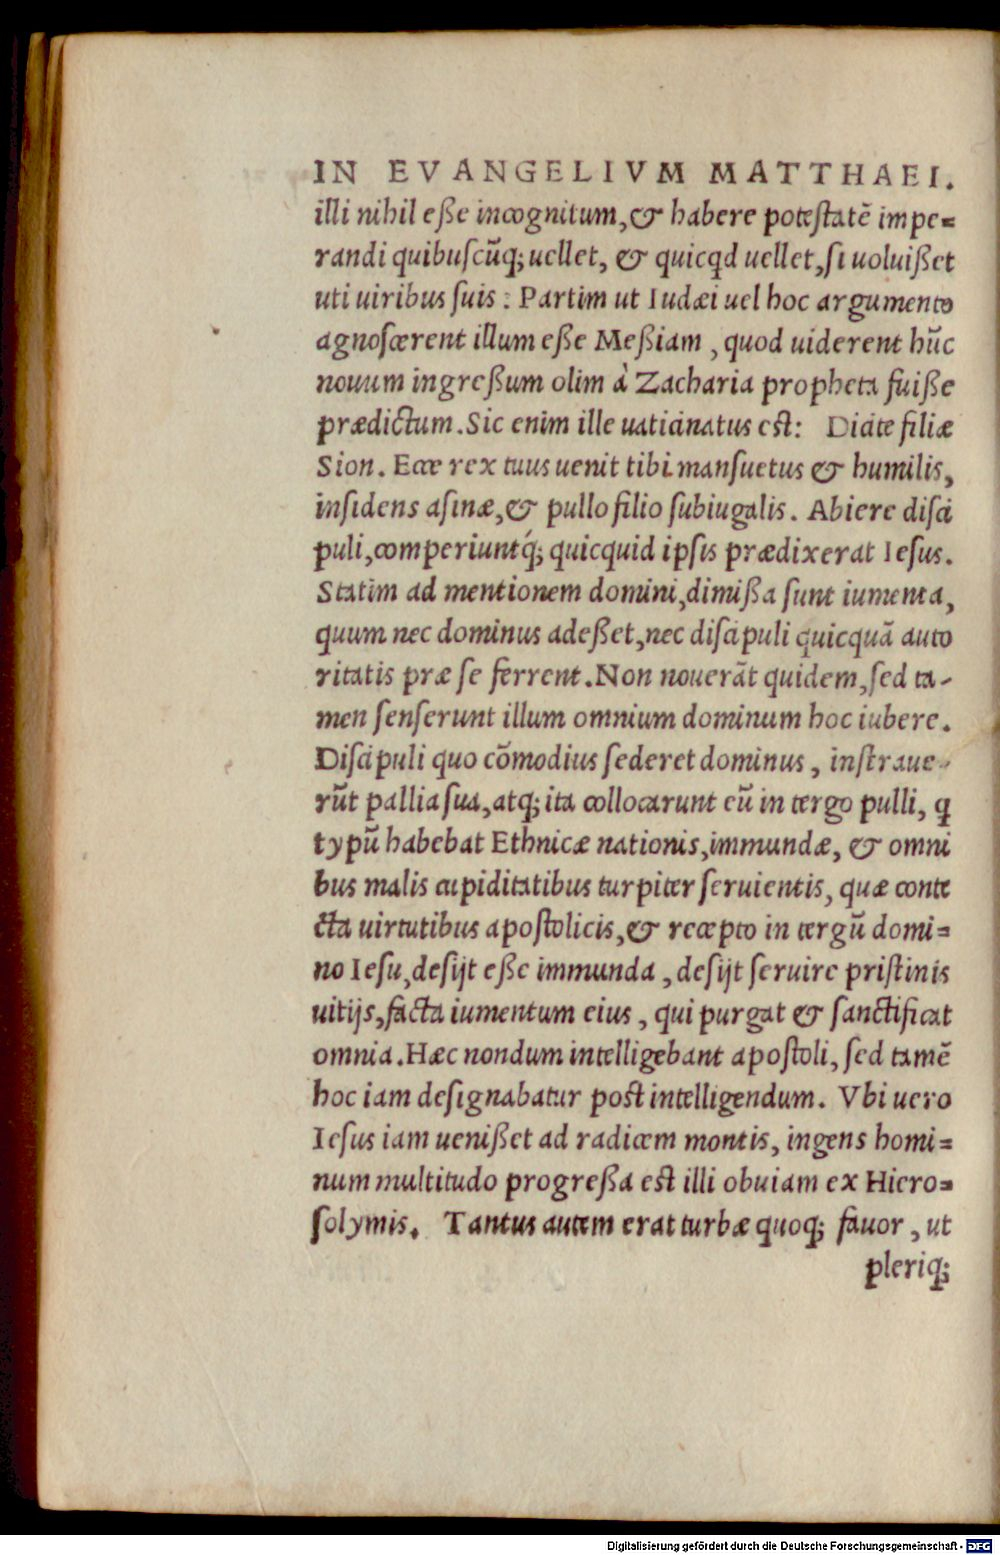 IN EVANGELIVM MATTHAEI.
illi nihil eße incognitum,& habere poteſtatē impe=
randi quibuſcūq; uellet, & quicqd uellet,ſi uoluißet
uti uiribus ſuis : Partim ut Iudæi uel hoc argumento
agnoſcerent illum eße Meßiam , quod uiderent hūc
nouum ingreßum olim à Zacharia propheta fuiße
prædictum.Sic enim ille uaticinatus est: Dicite filiæ
Sion. Ecce rex tuus uenit tibi manſuetus & humilis,
inſidens aſinæ,& pullo filio ſubiugalis. Abiere diſci
puli,comperiuntq́; quicquid ipſis prædixerat Ieſus.
Statim ad mentionem domini,dimißa ſunt iumenta,
quum nec dominus adeßet,nec diſcipuli quicquā auto
ritatis præ ſe ferrent.Non nouerāt quidem,ſed ta-
men ſenſerunt illum omnium dominum hoc iubere.
Diſcipuli quo cōmodius ſederet dominus , inſtraue-
rūt pallia ſua,atq; ita collocarunt eū in tergo pulli, ꝗ
typū habebat Ethnicæ nationis,immundæ, & omni
bus malis cupiditatibus turpiter ſeruientis, quæ conte
cta uirtutibus apoſtolicis,& recepto in tergū domi=
no Ieſu,deſijt eße immunda , deſijt ſeruire priſtinis
uitijs,facta iumentum eius , qui purgat & ſanctificat
omnia.Hæc nondum intelligebant apoſtoli, ſed tamē
hoc iam deſignabatur poſt intelligendum. Vbi uero
Ieſus iam uenißet ad radicem montis, ingens homi=
num multitudo progreßa eſt illi obuiam ex Hiero=
ſolymis. Tantus autem erat turbæ quoq; fauor , ut
pleriq;
Digitalisierung gefördert durch die Deutsche Forschungsgemeinschaft - DFG